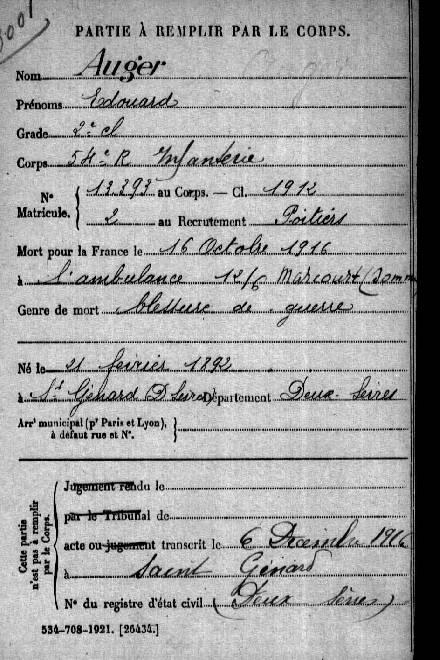 PARTIE À REMPLIR PAR LE CORPS.
Nom Auger
Prénoms Edouard
Grade 2e cl
Corps 54e R Infanterie
No Matricule. { 13.393 au Corps. — Cl. 1912
2 au Recrutement Poitiers
Mort pour la France le 16 Octobre 1916
à l'ambulance 12/6 Marcourt (Somme
Genre de mort blessure de guerre
Né le 21 février 1892
à St Génard (D Sèvres) Département Deux-Sèvres
Arrt municipal (pr Paris et Lyon), à défaut rue et No. }
Cette partie n'est pas à remplir par le Corps.
Jugement rendu le
par le Tribunal de
acte ou jugement transcrit le 6 Décembre 1916
à Saint Génard
No du registre d'état civil (Deux Sèvres)
534-708-1921. [26434.]